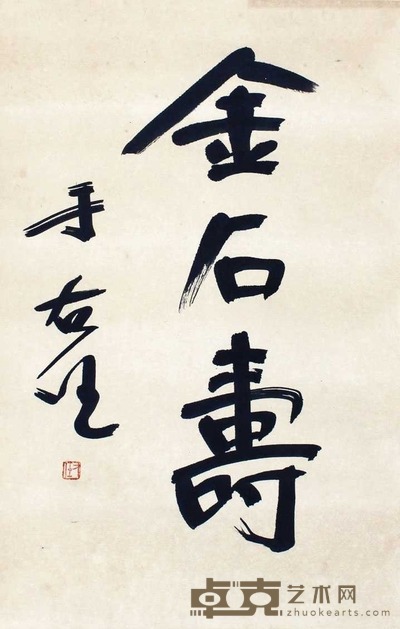 金石壽
于右任
卓克艺术网
zhuokearts.com